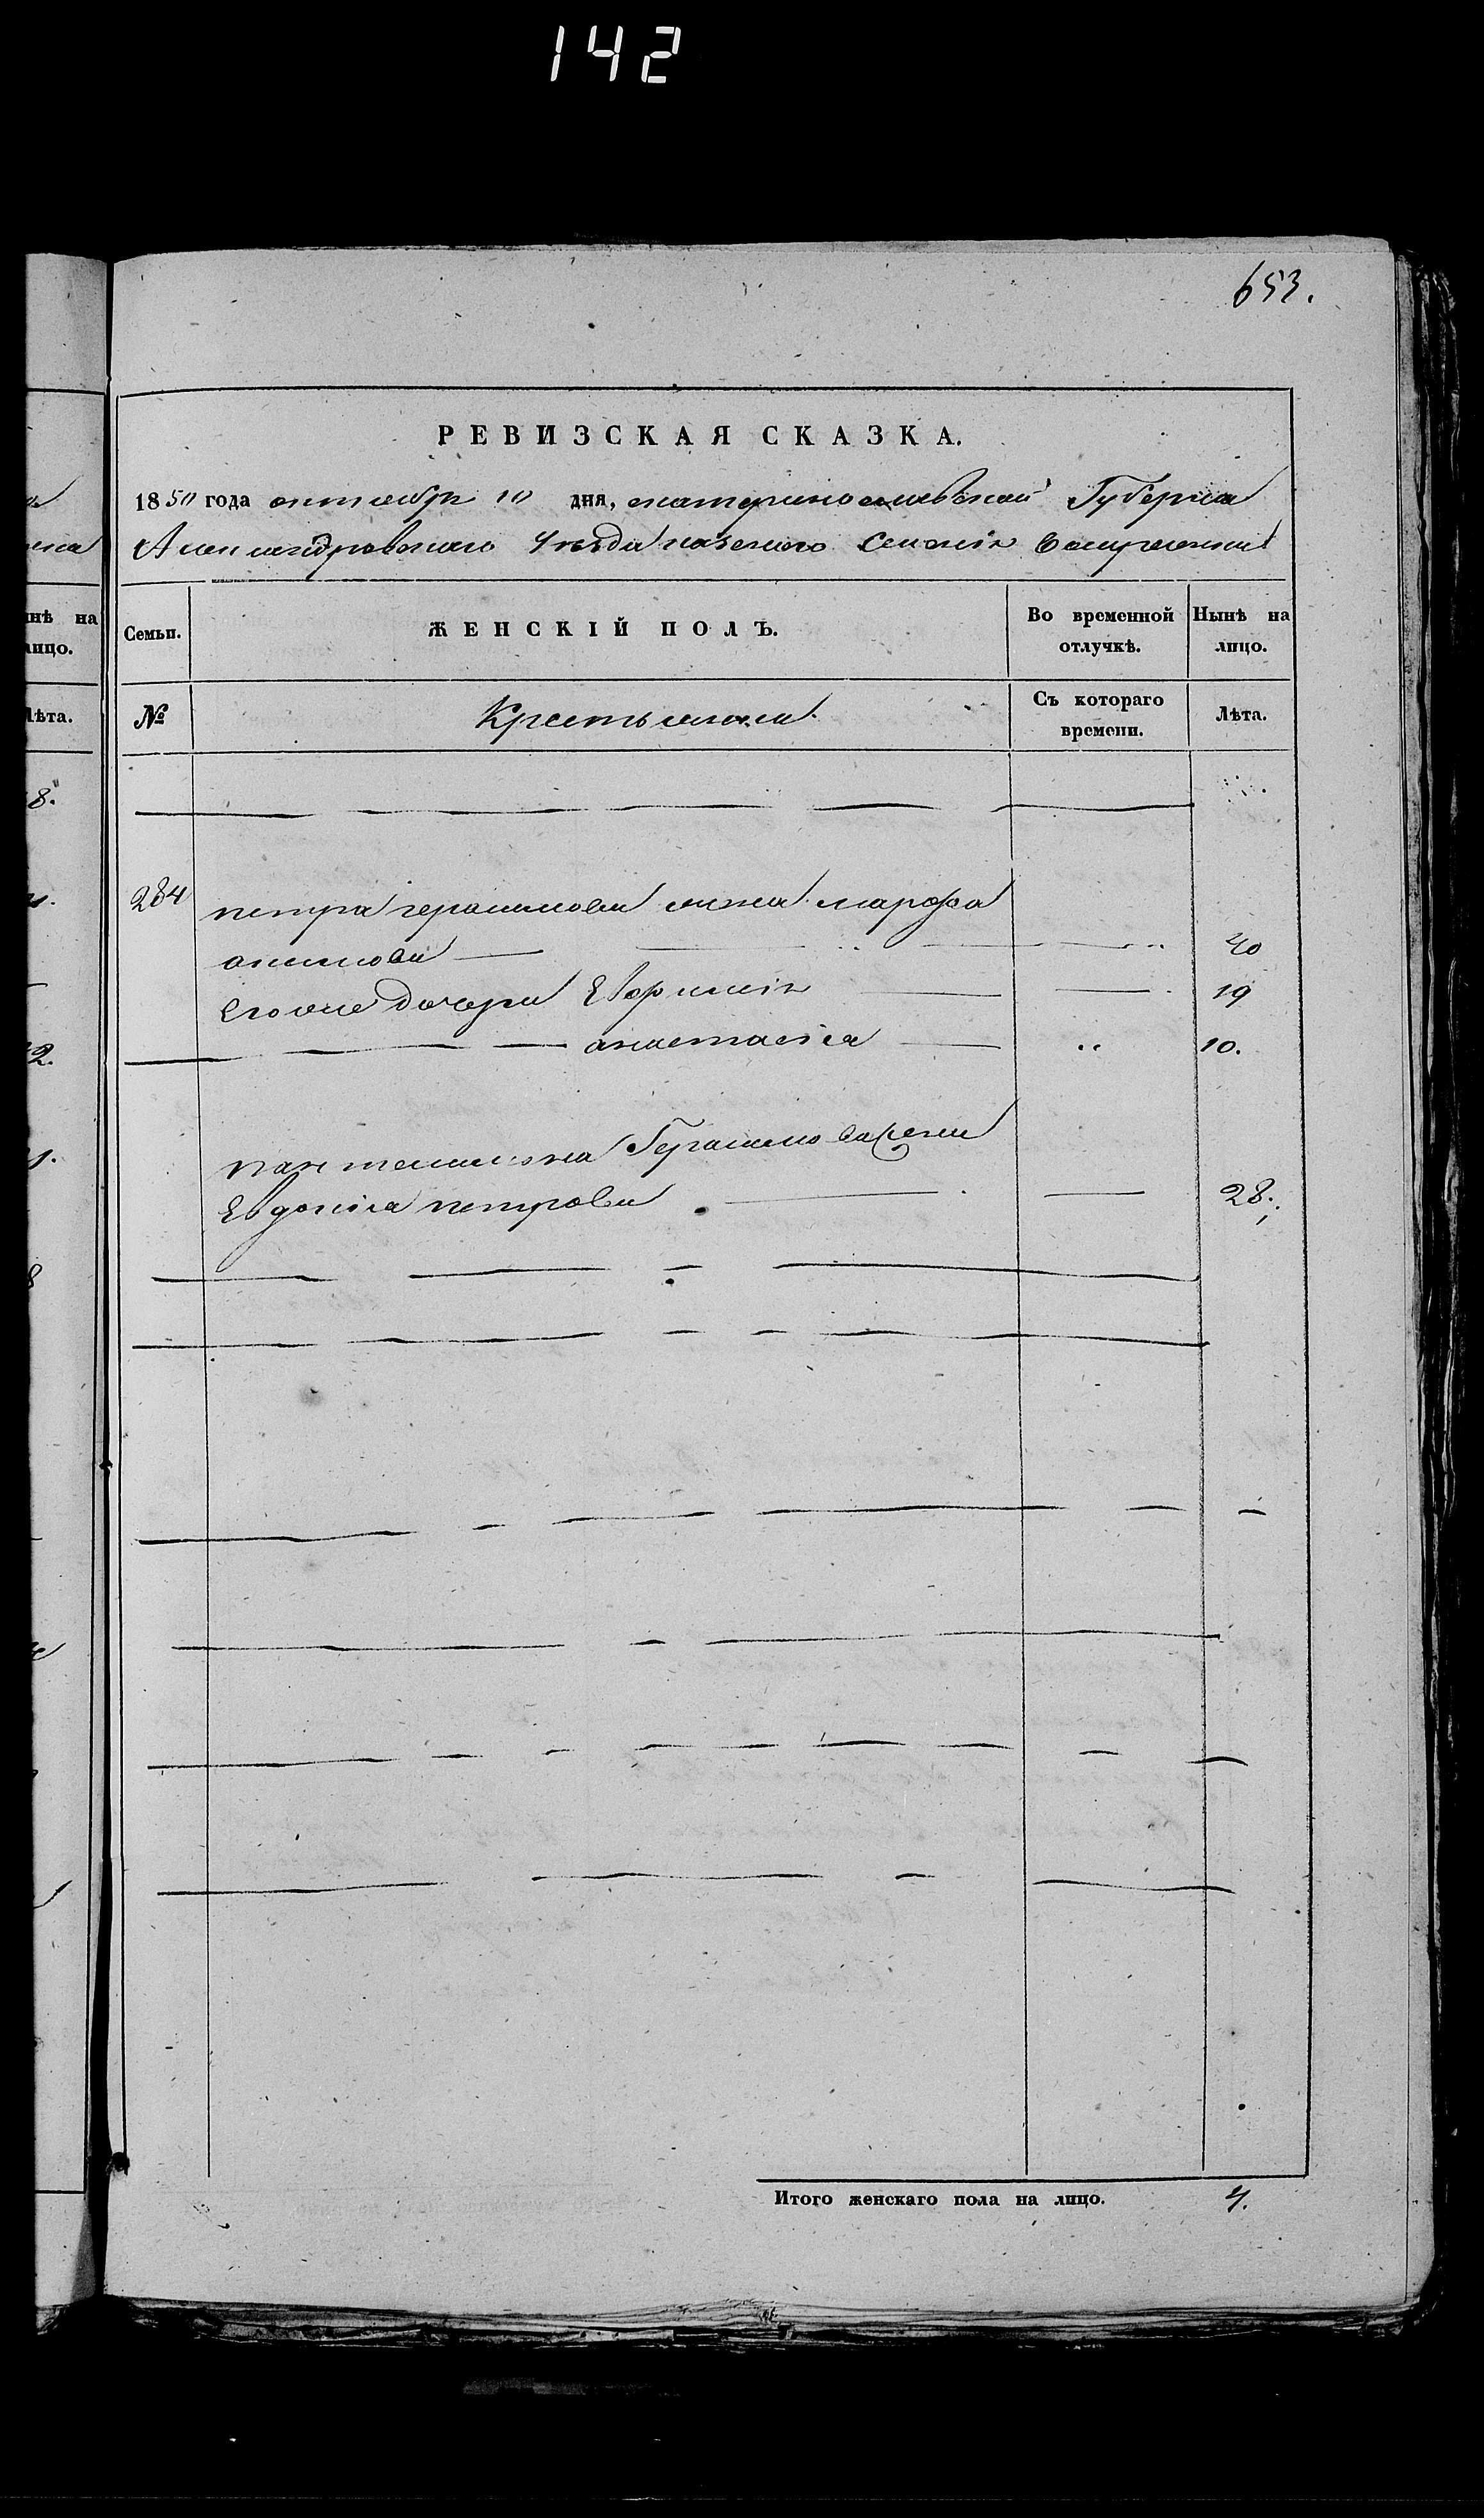 142
653.
РЕВИЗСКАЯ СКАЗКА.
1850 года октября 10 дня, екатеринославской Губерніи
Александровскаго Уезда казенного Селенія Воскресенки
Семьи.
ЖЕНСКІЙ ПОЛЪ.
Во временной отлучкѣ.
Нынѣ на лицо.
№
Крестьяне
Съ котораго времени.
Лѣта.
284
петра герасимова жена марфа
акимова 40
Его же дочери Евфимія 19
анастасія 10.
пантелимона Герасимова жена
Евдокія петрова 28.
Итого женскаго пола на лицо. 4.
нѣ на
лицо.
Лѣта.
8.
2.